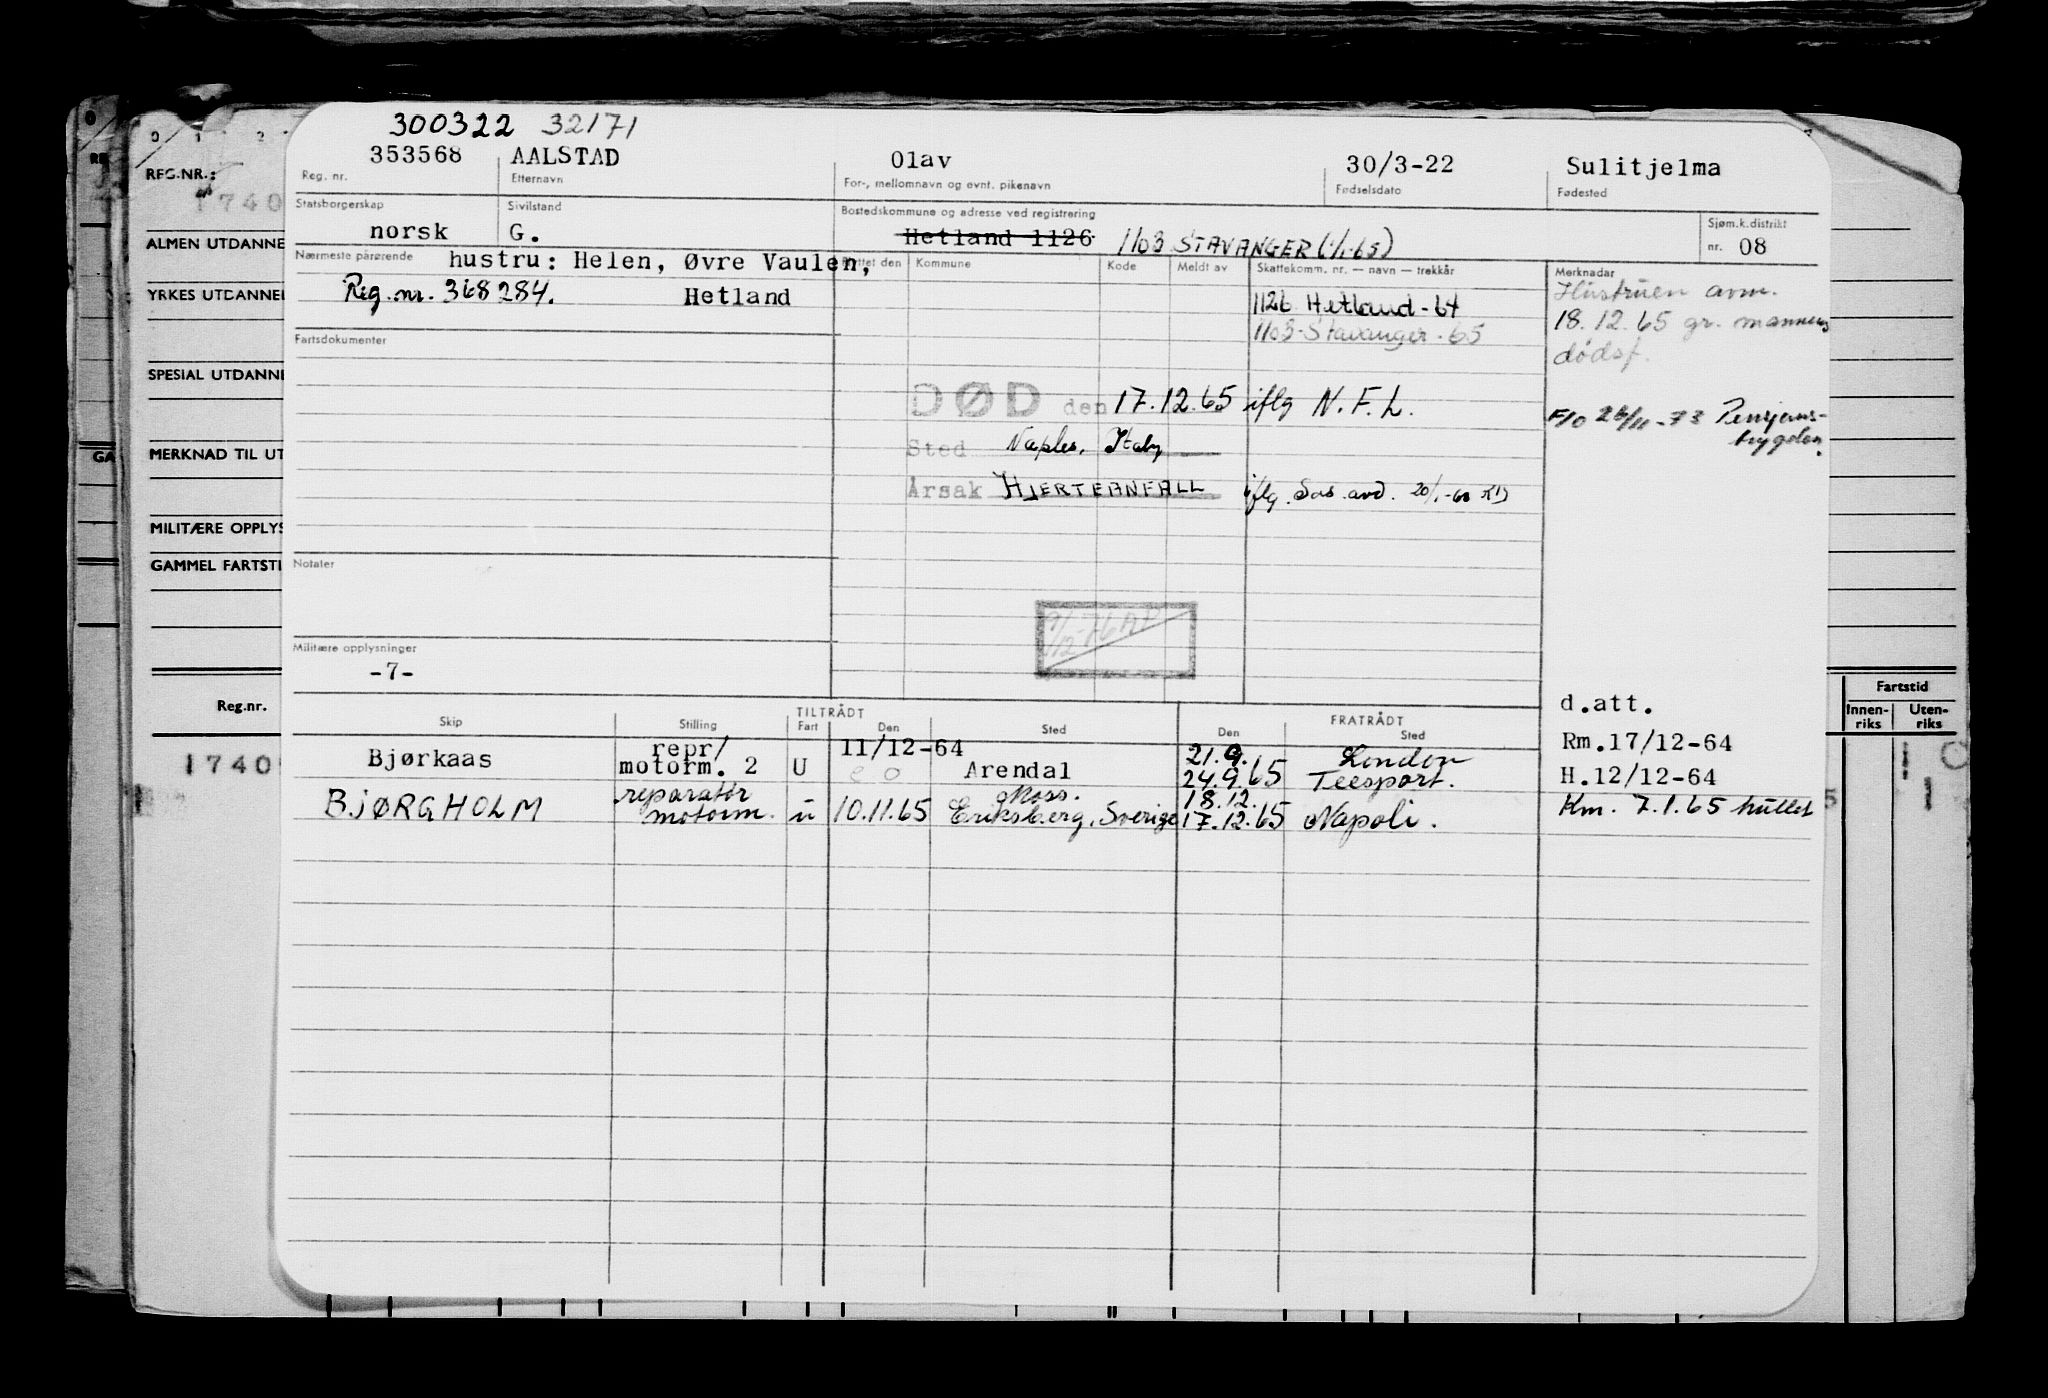 300322 32171
353568 AALSTAD Olav 30/3-22 Sulitjelma
Reg. nr. Etternavn For-, mellomnavn og evnt. pikenavn Fødselsdato Fødested
Statsborgerskap Sivilstand Bostedskommune og adresse ved registrering Sjøm.k.distrikt
norsk G. Hetland 1126 1103 STAVANGER (1/1-65) nr. 08
Nærmeste pårørende hustru: Helen, Øvre Vaulen,
Reg. nr. 368284. Hetland
Flyttet den Kommune Kode Meldt av Skattekomm. nr. — navn — trekkår Merknader
1126 Hetland-64
1103-Stavanger-65
Hustruen anm.
18.12.65 gr. mannens
dødsf.
F/O 26/11-73 Pensjons-
trygden.
Fartsdokumenter
DØD den 17.12.65 iflg N.F.L.
Sted Naples, Italy
Årsak HJERTEANFALL iflg. Sos. avd. 20/1-66
Notater
Militære opplysninger
-7-
TILTRÅDT FRATRÅDT
Skip Stilling Fart Den Sted Den Sted
Bjørkaas repr/ motorm. 2 U 11/12-64 Arendal 21.9. 24.9.65 London Teesport.
BJØRGHOLM reparatør motorm. u 10.11.65 Moss. Eriksberg, Sverige 18.12. 17.12.65 Napoli.
d.att.
Rm.17/12-64
H.12/12-64
Km. 7.1.65 hullet
0 1 2
REG.NR.:
1740
ALMEN UTDANNE
YRKES UTDANNEL
SPESIAL UTDANNE
MERKNAD TIL UT
MILITÆRE OPPLYS
GAMMEL FARTSTI
Reg.nr.
1740
Fartstid
Innen-
riks
Uten-
riks